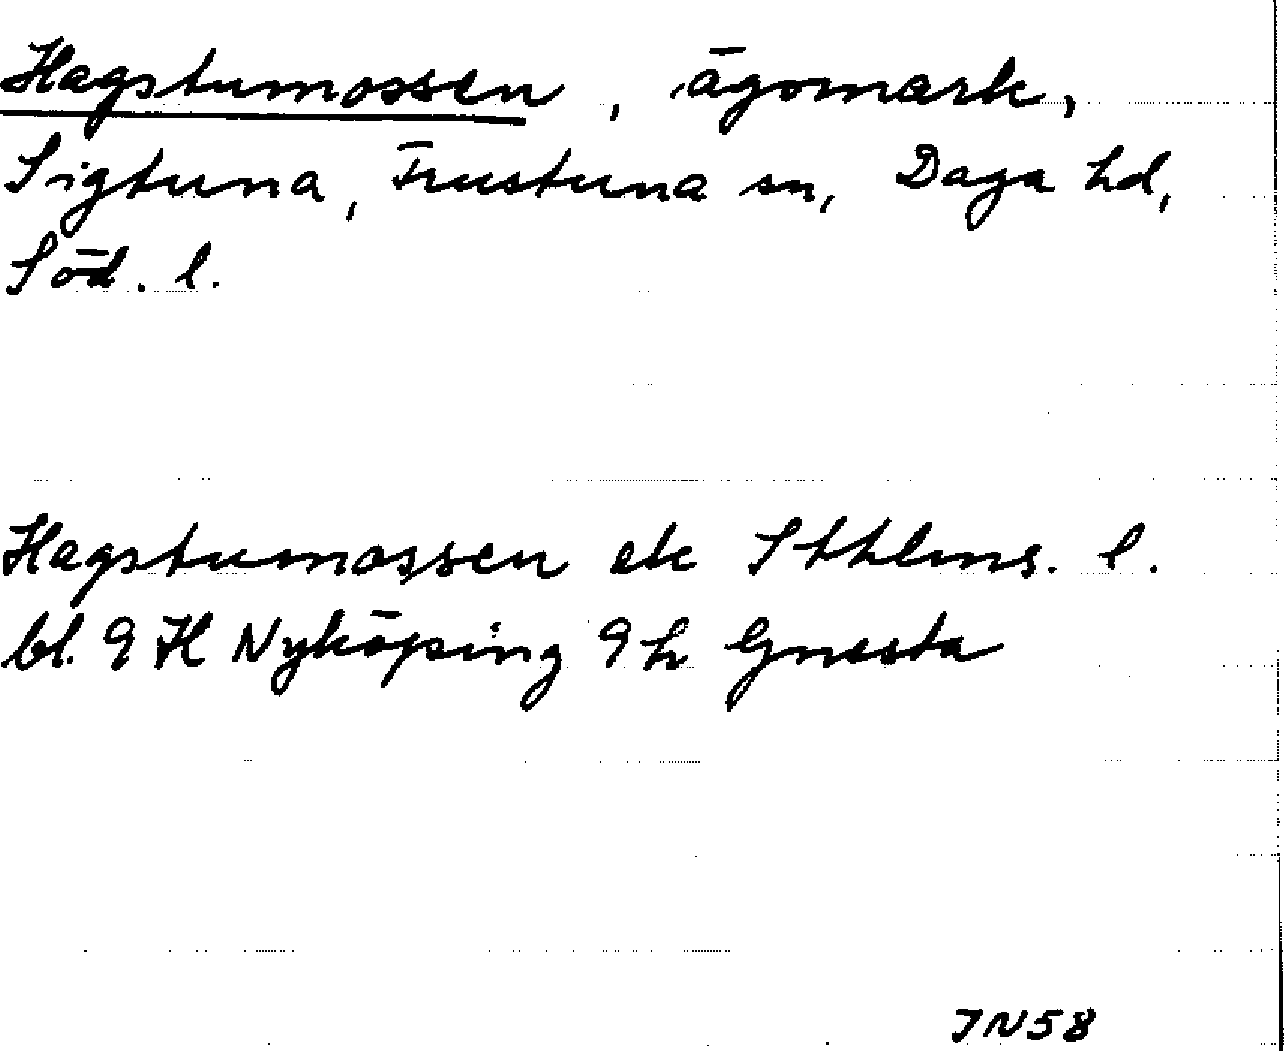 Hagstumossen, ägomark,
Sigtuna, Frustuna sn, Daga hd,
Söd. l.
Hagstumossen ek Sthlms. l.
bl. 9 H Nyköping 9 h Gnesta
JN58